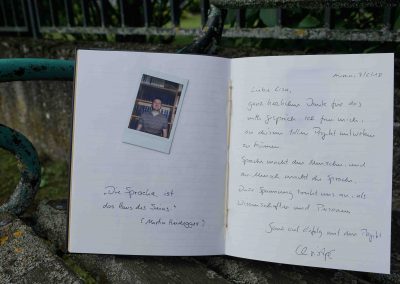 „Die Sprache ist
das Haus des Seins."
(Martin Heidegger)
Liebe Lisa,
ganz herzlichen Dank für das
Gespräch. Ich freue mich,
an diesem tollen Projekt mitwirken
zu können.
Sprache macht den Menschen und
der Mensch macht die Sprache.
Diese Spannung treibt uns an, als
Wissenschaftler und Personen.
Ganz viel Erfolg mit dem Projekt!